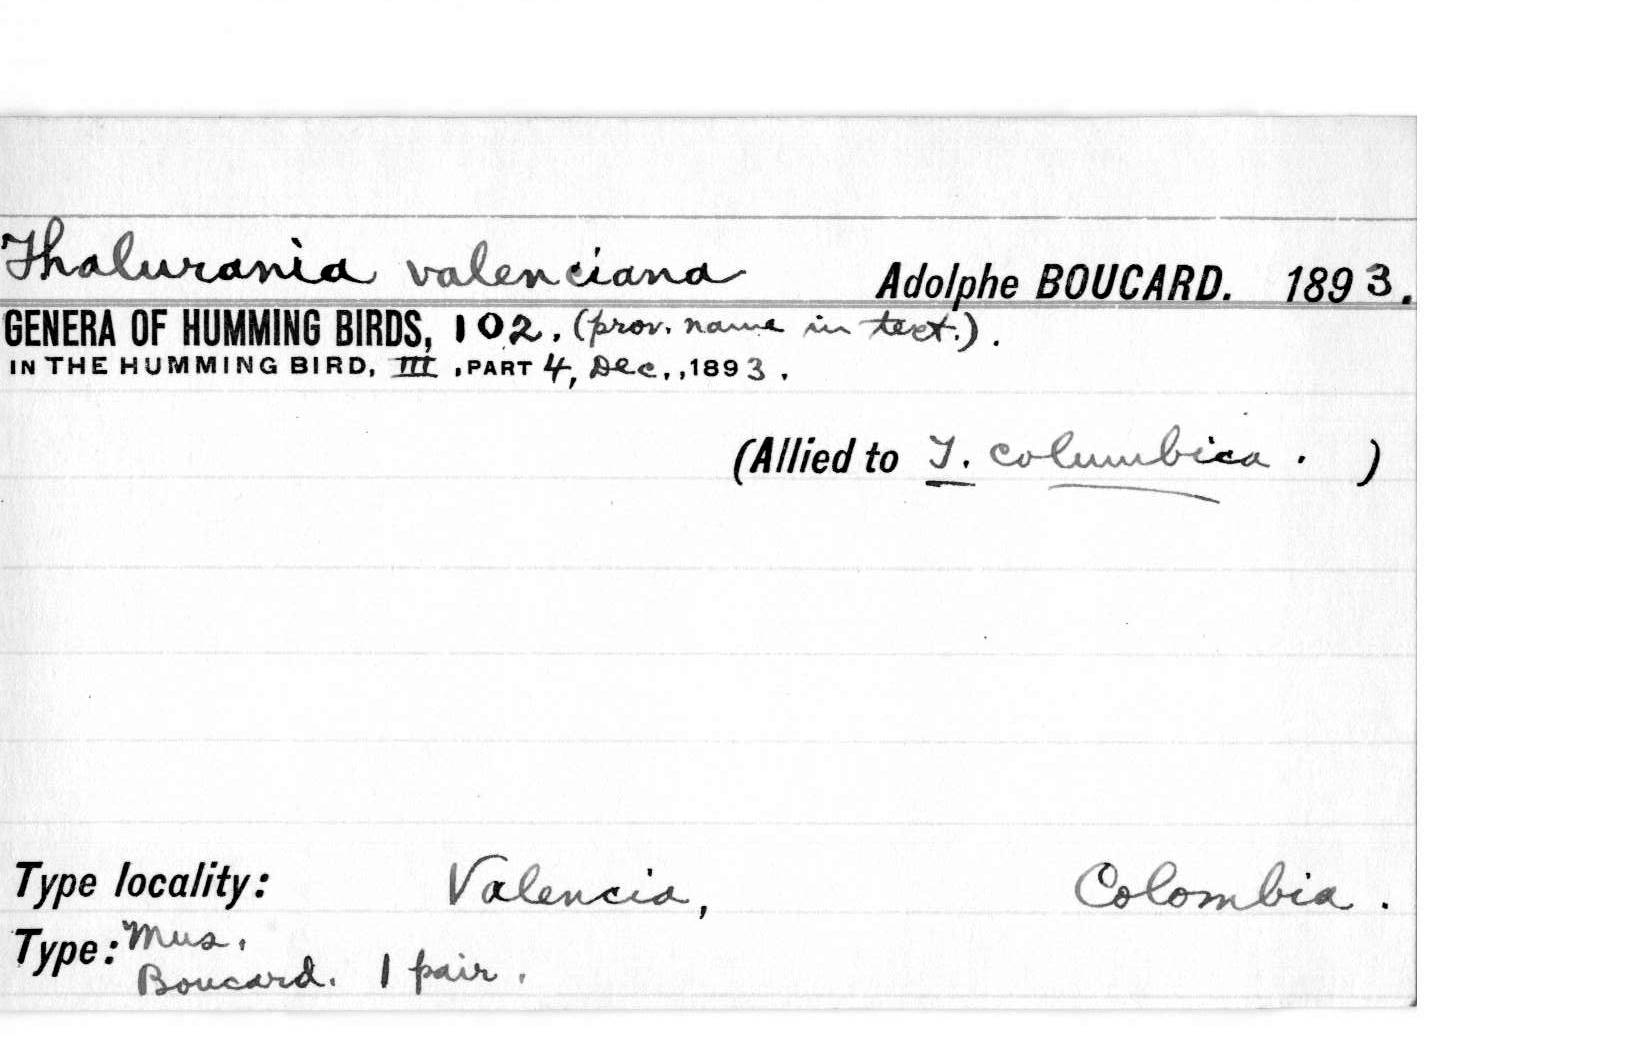 Thalurania valenciana Adolphe BOUCARD. 1893.
GENERA OF HUMMING BIRDS, 102. (prov. name in text.).
IN THE HUMMING BIRD, III, PART 4, Dec., 1893.
(Allied to T. columbica. )
Type locality: Valencia, Colombia.
Type: Mus.
Boucard. 1 pair.